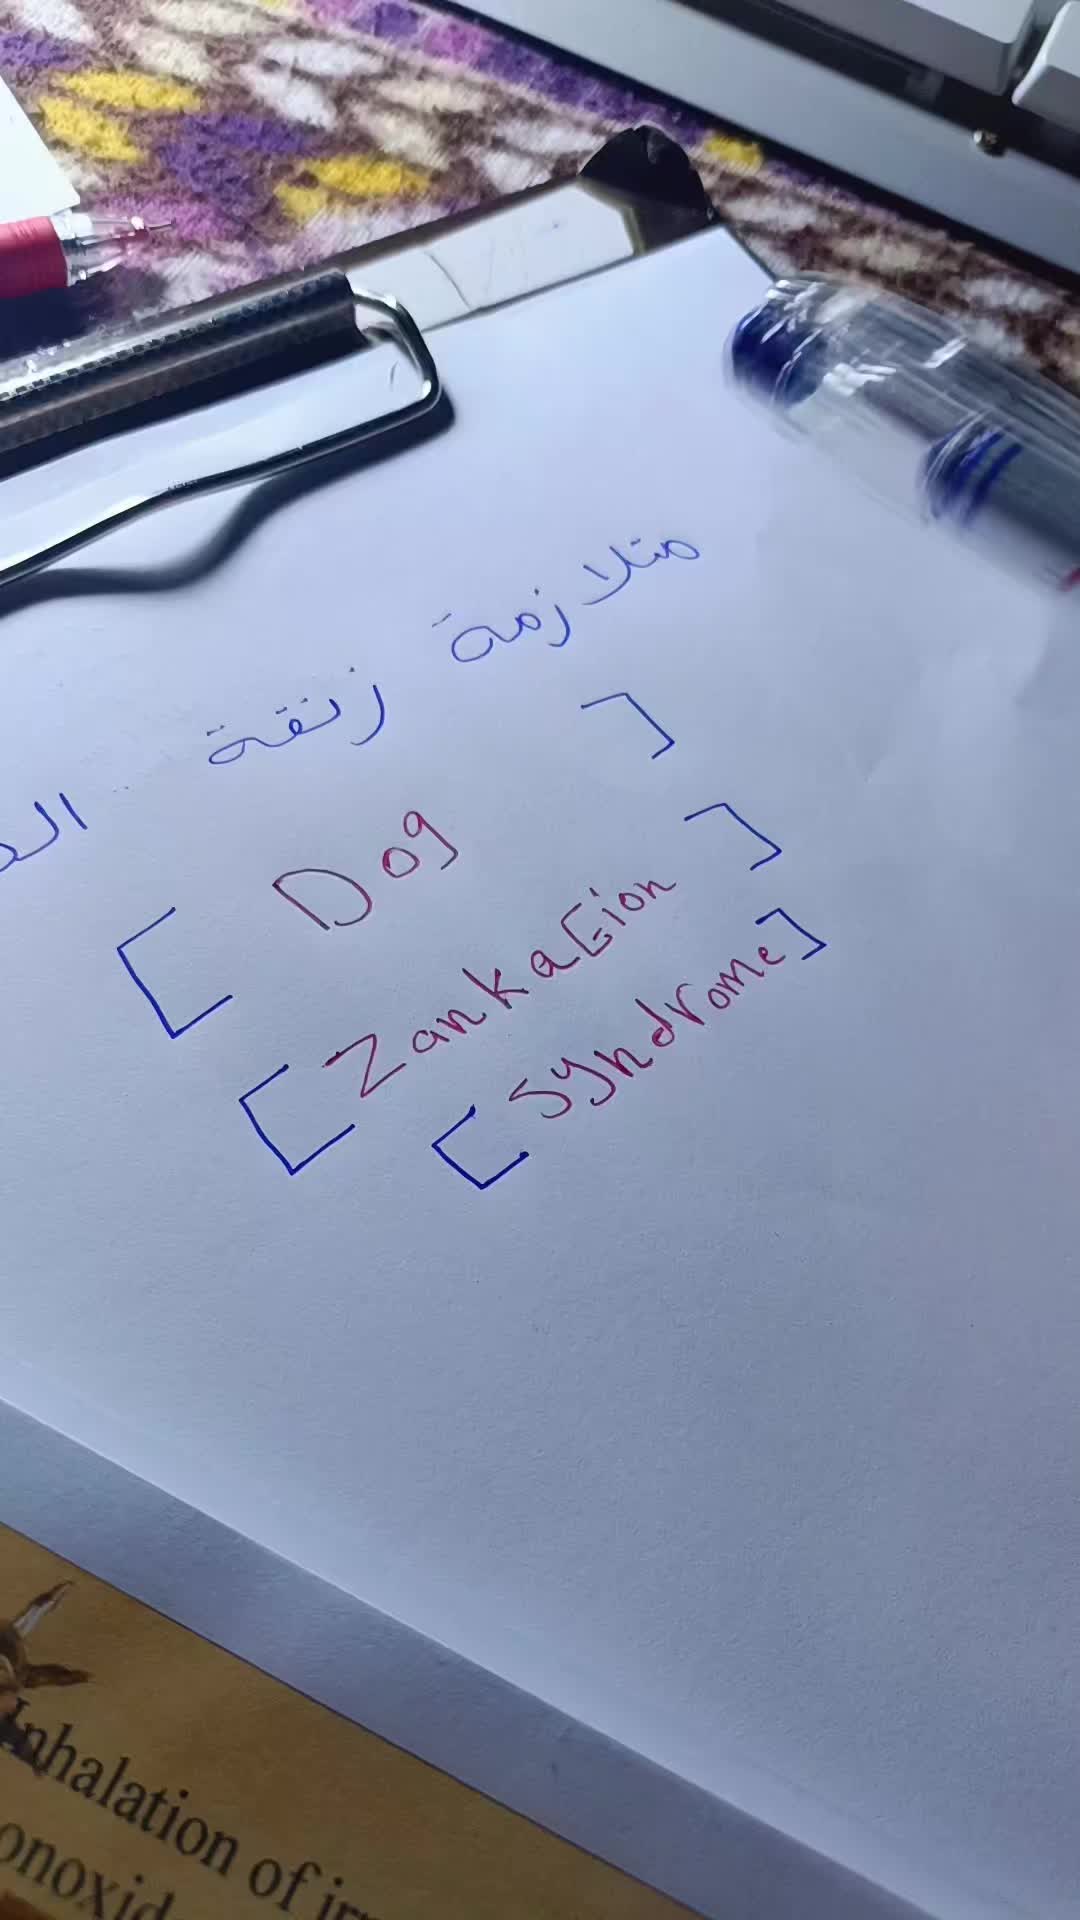 متلازمة زنقة
[ Dog ]
[ Zankation ]
[ Syndrome ]
Inhalation of